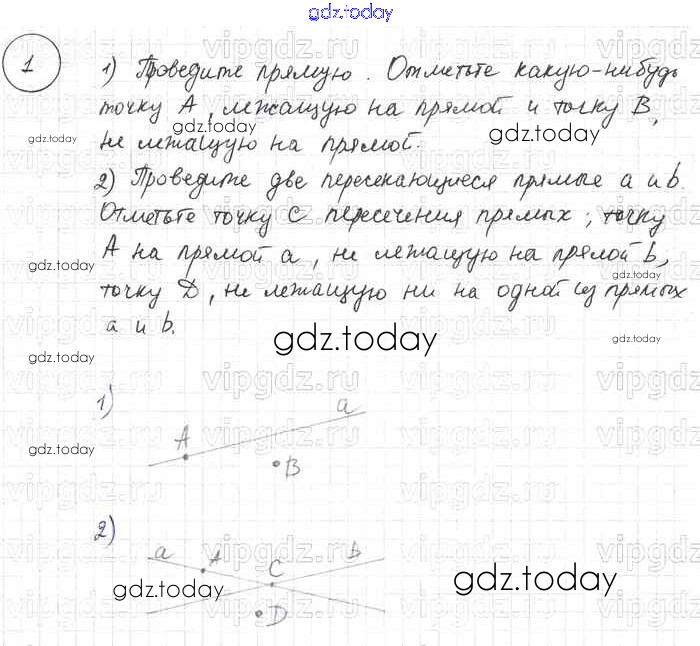 gdz.today
1
1) Проведите прямую. Отметьте какую-нибудь
точку A, лежащую на прямой и точку B,
не лежащую на прямой.
2) Проведите две пересекающиеся прямые a и b.
Отметьте точку C пересечения прямых; точку
A на прямой a, не лежащую на прямой b,
точку D, не лежащую ни на одной из прямых
a и b.
gdz.today
gdz.today
gdz.today
gdz.today
gdz.today
gdz.today
gdz.today
gdz.today
1)
a
A
B
gdz.today
2)
a A C b
D
gdz.today
gdz.today
vipgdz.ru